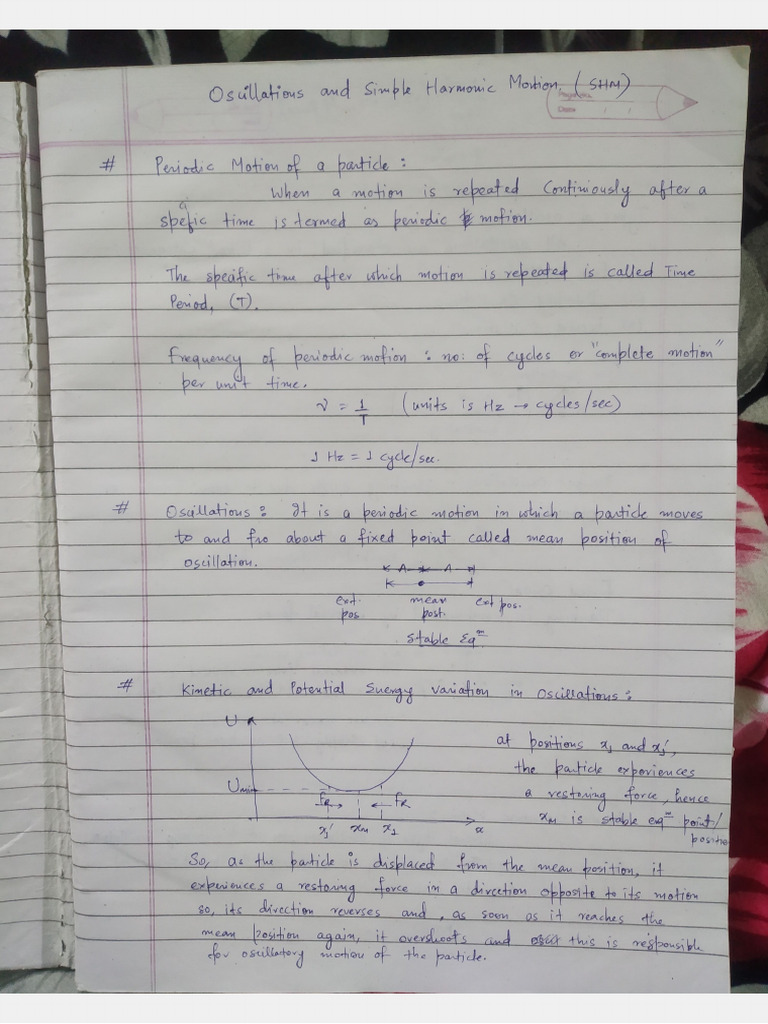 Oscillations and Simple Harmonic Motion (SHM)
# Periodic Motion of a particle :
When a motion is repeated Continiously after a
a
spefic time is termed as periodic motion.
The specific time after which motion is repeated is called Time
Period, (T).
Frequency of periodic motion : no: of cycles or "complete motion"
per unit time.
ν = 1/T (units is Hz → cycles/sec)
1 Hz = 1 cycle/sec.
# Oscillations : It is a periodic motion in which a particle moves
to and fro about a fixed point called mean position of
oscillation.
A A
ext. mean ext pos.
pos post.
Stable Eqᵐ
# Kinetic and Potential Energy variation in Oscillations :
U
at positions x₁ and x₁',
the particle experiences
Umin
a restoring force, hence
fR fR
xM is stable eqᵐ point/
x₁' xM x₁ x
position
So, as the particle is displaced from the mean position, it
experiences a restoring force in a dircetion opposite to its motion
so, its direction reverses and , as soon as it reaches the
mean position again, it overshoots and this is responsible
for oscillatory motion of the particle.